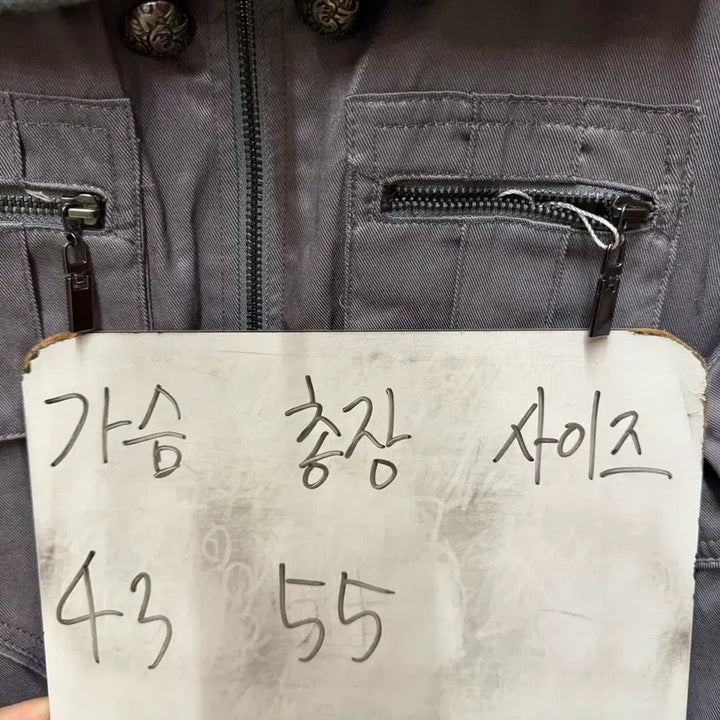 가슴 총장 사이즈
43 55